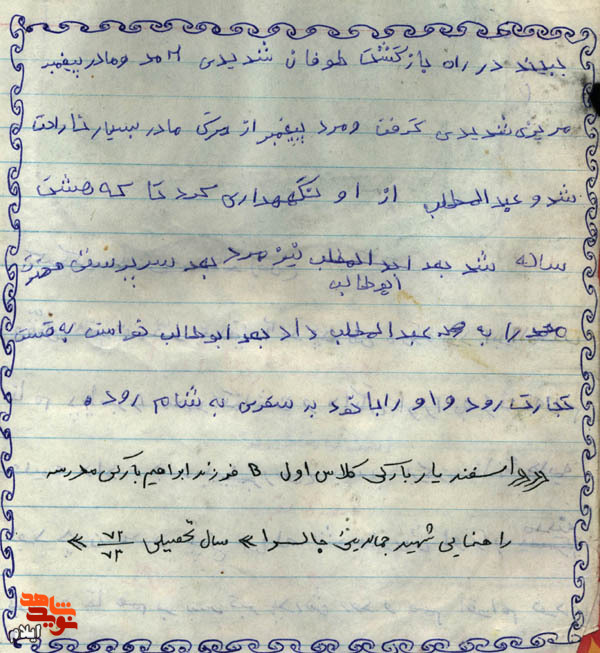 ببیند در راه بازگشت طوفان شدیدی آمد و مادر پیغمبر
مریض شدیدی گرفت و مرد پیغمبر از مرگ مادر بسیار ناراحت
شد و عبدالمطلب از او نگهداری کرد تا که هشت
ساله شد بعد عبدالمطلب نیز مرد بعد سرپرستی
ابوطالب
محمد را به عبدالمطلب داد بعد ابوطالب خواست به قصد
تجارت رود و او را با خود به سفری به شام رود .
اسفندیار بارکی کلاس اول B فرزند ابراهیم بارکی مدرسه
راهنمایی شهید جالسوا » سال تحصیلی ۷۲/۷۳ »
شاهد
نوید
ایلام